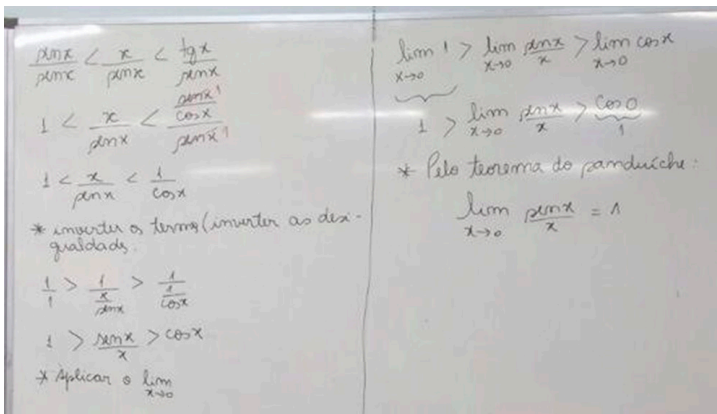 senx/senx < x/senx < tgx/senx
1 < x/senx < (senx/cosx)/senx
1 < x/senx < 1/cosx
* inverter os termos (inverter as desi-
gualdades.
1/1 > 1/(x/senx) > 1/(1/cosx)
1 > senx/x > cosx
* Aplicar o lim x→0
lim x→0 1 > lim x→0 senx/x > lim x→0 cosx
1 > lim x→0 senx/x > cos0
1
* Pelo teorema do sanduíche:
lim x→0 senx/x = 1